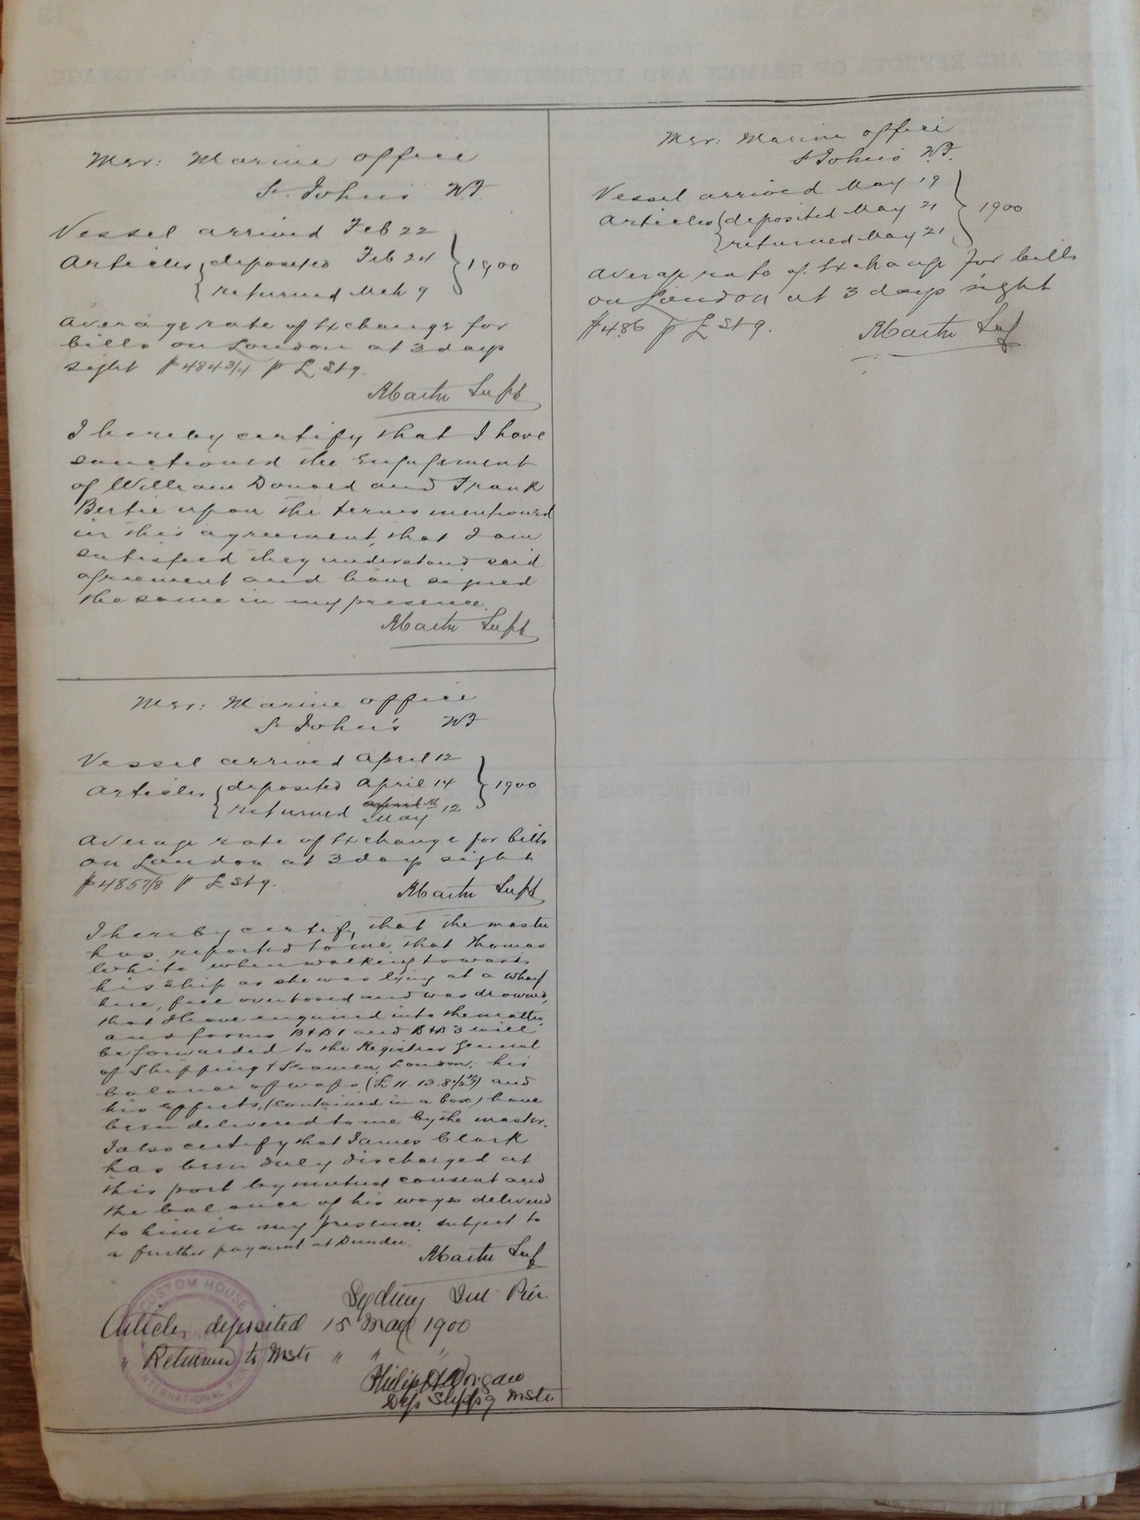 Mer: Marine office
St. John's NF
Vessel arrived Feb 22
Articles { deposited Feb 24 } 1900
{ returned Mch 9
average rate of Exchange for
bills on London at 3 days
sight $4843/4 p £ Stg.
I hereby certify that I have
sanctioned the Engagement
of William Donald and Frank
Bertie upon the terms mentioned
in this agreement, that I am
satisfied they understand said
agreement and have signed
the same in my presence.
Mer: Marine office
St John's NF
Vessel arrived April 12
Articles { deposited April 14 } 1900
{ returned May 12
average rate of Exchange for bills
on London at 3 days sight
$4857/8 p £ Stg.
I hereby certify, that the master
has reported to me that Thomas
White when walking towards
his ship as she was lying at a wharf
here, fell overboard and was drowned,
that I have enquired into the matter
and forms B&D1 and B&D3 will
be forwarded to the Registrar General
of Shipping & Seamen, London, his
balance of wages (£11.13.8) and
his effects, (contained in a box) have
been delivered to me by the master.
I also certify that James Clark
has been duly discharged at
this port by mutual consent and
the balance of his wages delivered
to him in my presence, subject to
a further payment at Dundee.
CUSTOM HOUSE
INTERNATIONAL PIER
Sydney Int Pier
Articles deposited 15 May 1900
" Returned to Mstr " " "
Dep Shippg Mstr
Mer: Marine office
St John's NF.
Vessel arrived May 19
Articles { deposited May 21 } 1900
{ returned May 21
average rate of Exchange for bills
on London at 3 days sight
$4.86 p £ Stg.